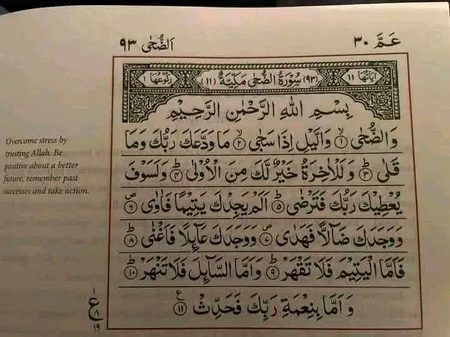 عَمَّ ٣٠
اَلضُّحٰى ٩٣
اٰيَاتُهَا ١١
(٩٣) سُوْرَةُ الضُّحٰى مَكِّيَّةٌ (١١)
رُكُوْعُهَا ١
بِسْمِ اللّٰهِ الرَّحْمٰنِ الرَّحِيْمِ
وَالضُّحٰى ١ وَالَّيْلِ اِذَا سَجٰى ٢ مَا وَدَّعَكَ رَبُّكَ وَمَا
قَلٰى ٣ وَلَلْاٰخِرَةُ خَيْرٌ لَّكَ مِنَ الْاُوْلٰى ٤ وَلَسَوْفَ
يُعْطِيْكَ رَبُّكَ فَتَرْضٰى ٥ اَلَمْ يَجِدْكَ يَتِيْمًا فَاٰوٰى ٦
وَوَجَدَكَ ضَآلًّا فَهَدٰى ٧ وَوَجَدَكَ عَآئِلًا فَاَغْنٰى ٨
فَاَمَّا الْيَتِيْمَ فَلَا تَقْهَرْ ٩ وَاَمَّا السَّآئِلَ فَلَا تَنْهَرْ ١٠
وَاَمَّا بِنِعْمَةِ رَبِّكَ فَحَدِّثْ ١١
Overcome stress by
trusting Allah. Be
positive about a better
future, remember past
successes and take action.
١
ع
٨
١٩